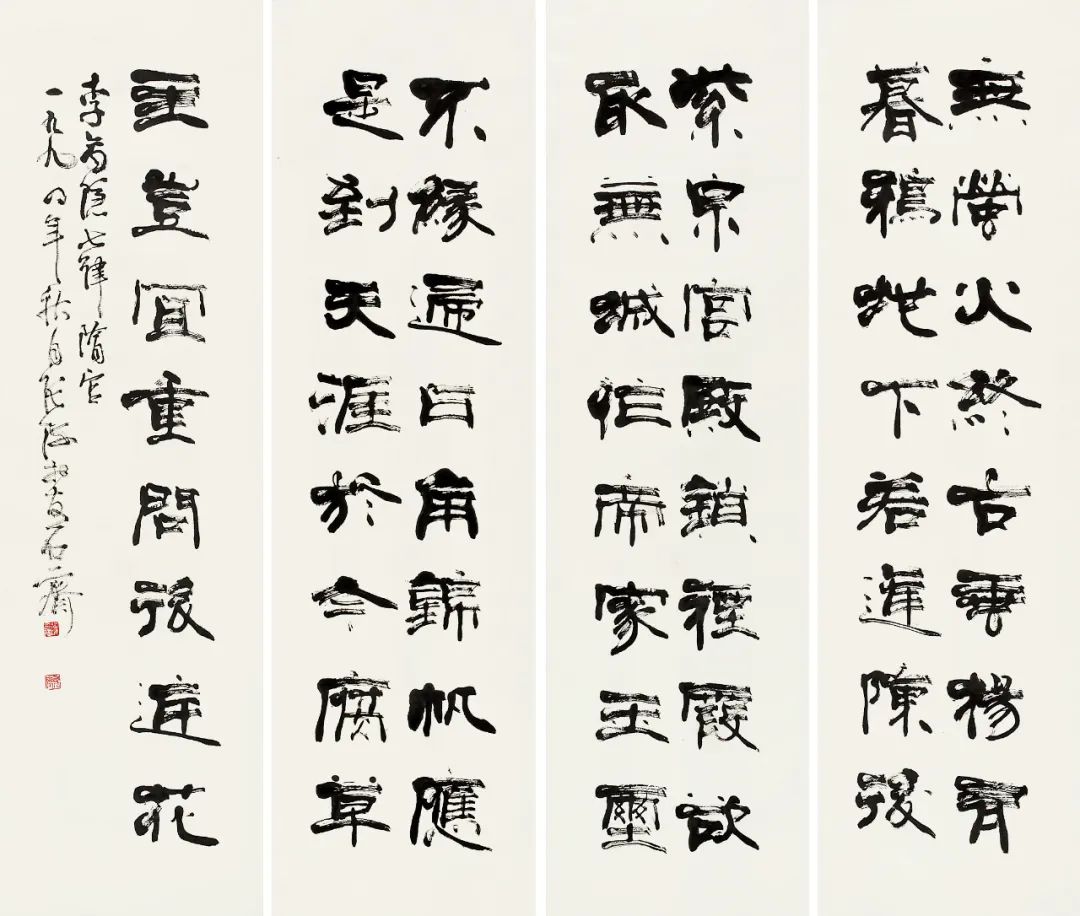 無螢火終古垂楊有
暮鴉地下若逢陳後
紫泉宮殿鎖煙霞欲
取蕪城作帝家玉璽
不緣歸日角錦帆應
是到天涯於今腐草
主豈宜重問後庭花
李商隱七律隋宮
一九九四年秋月